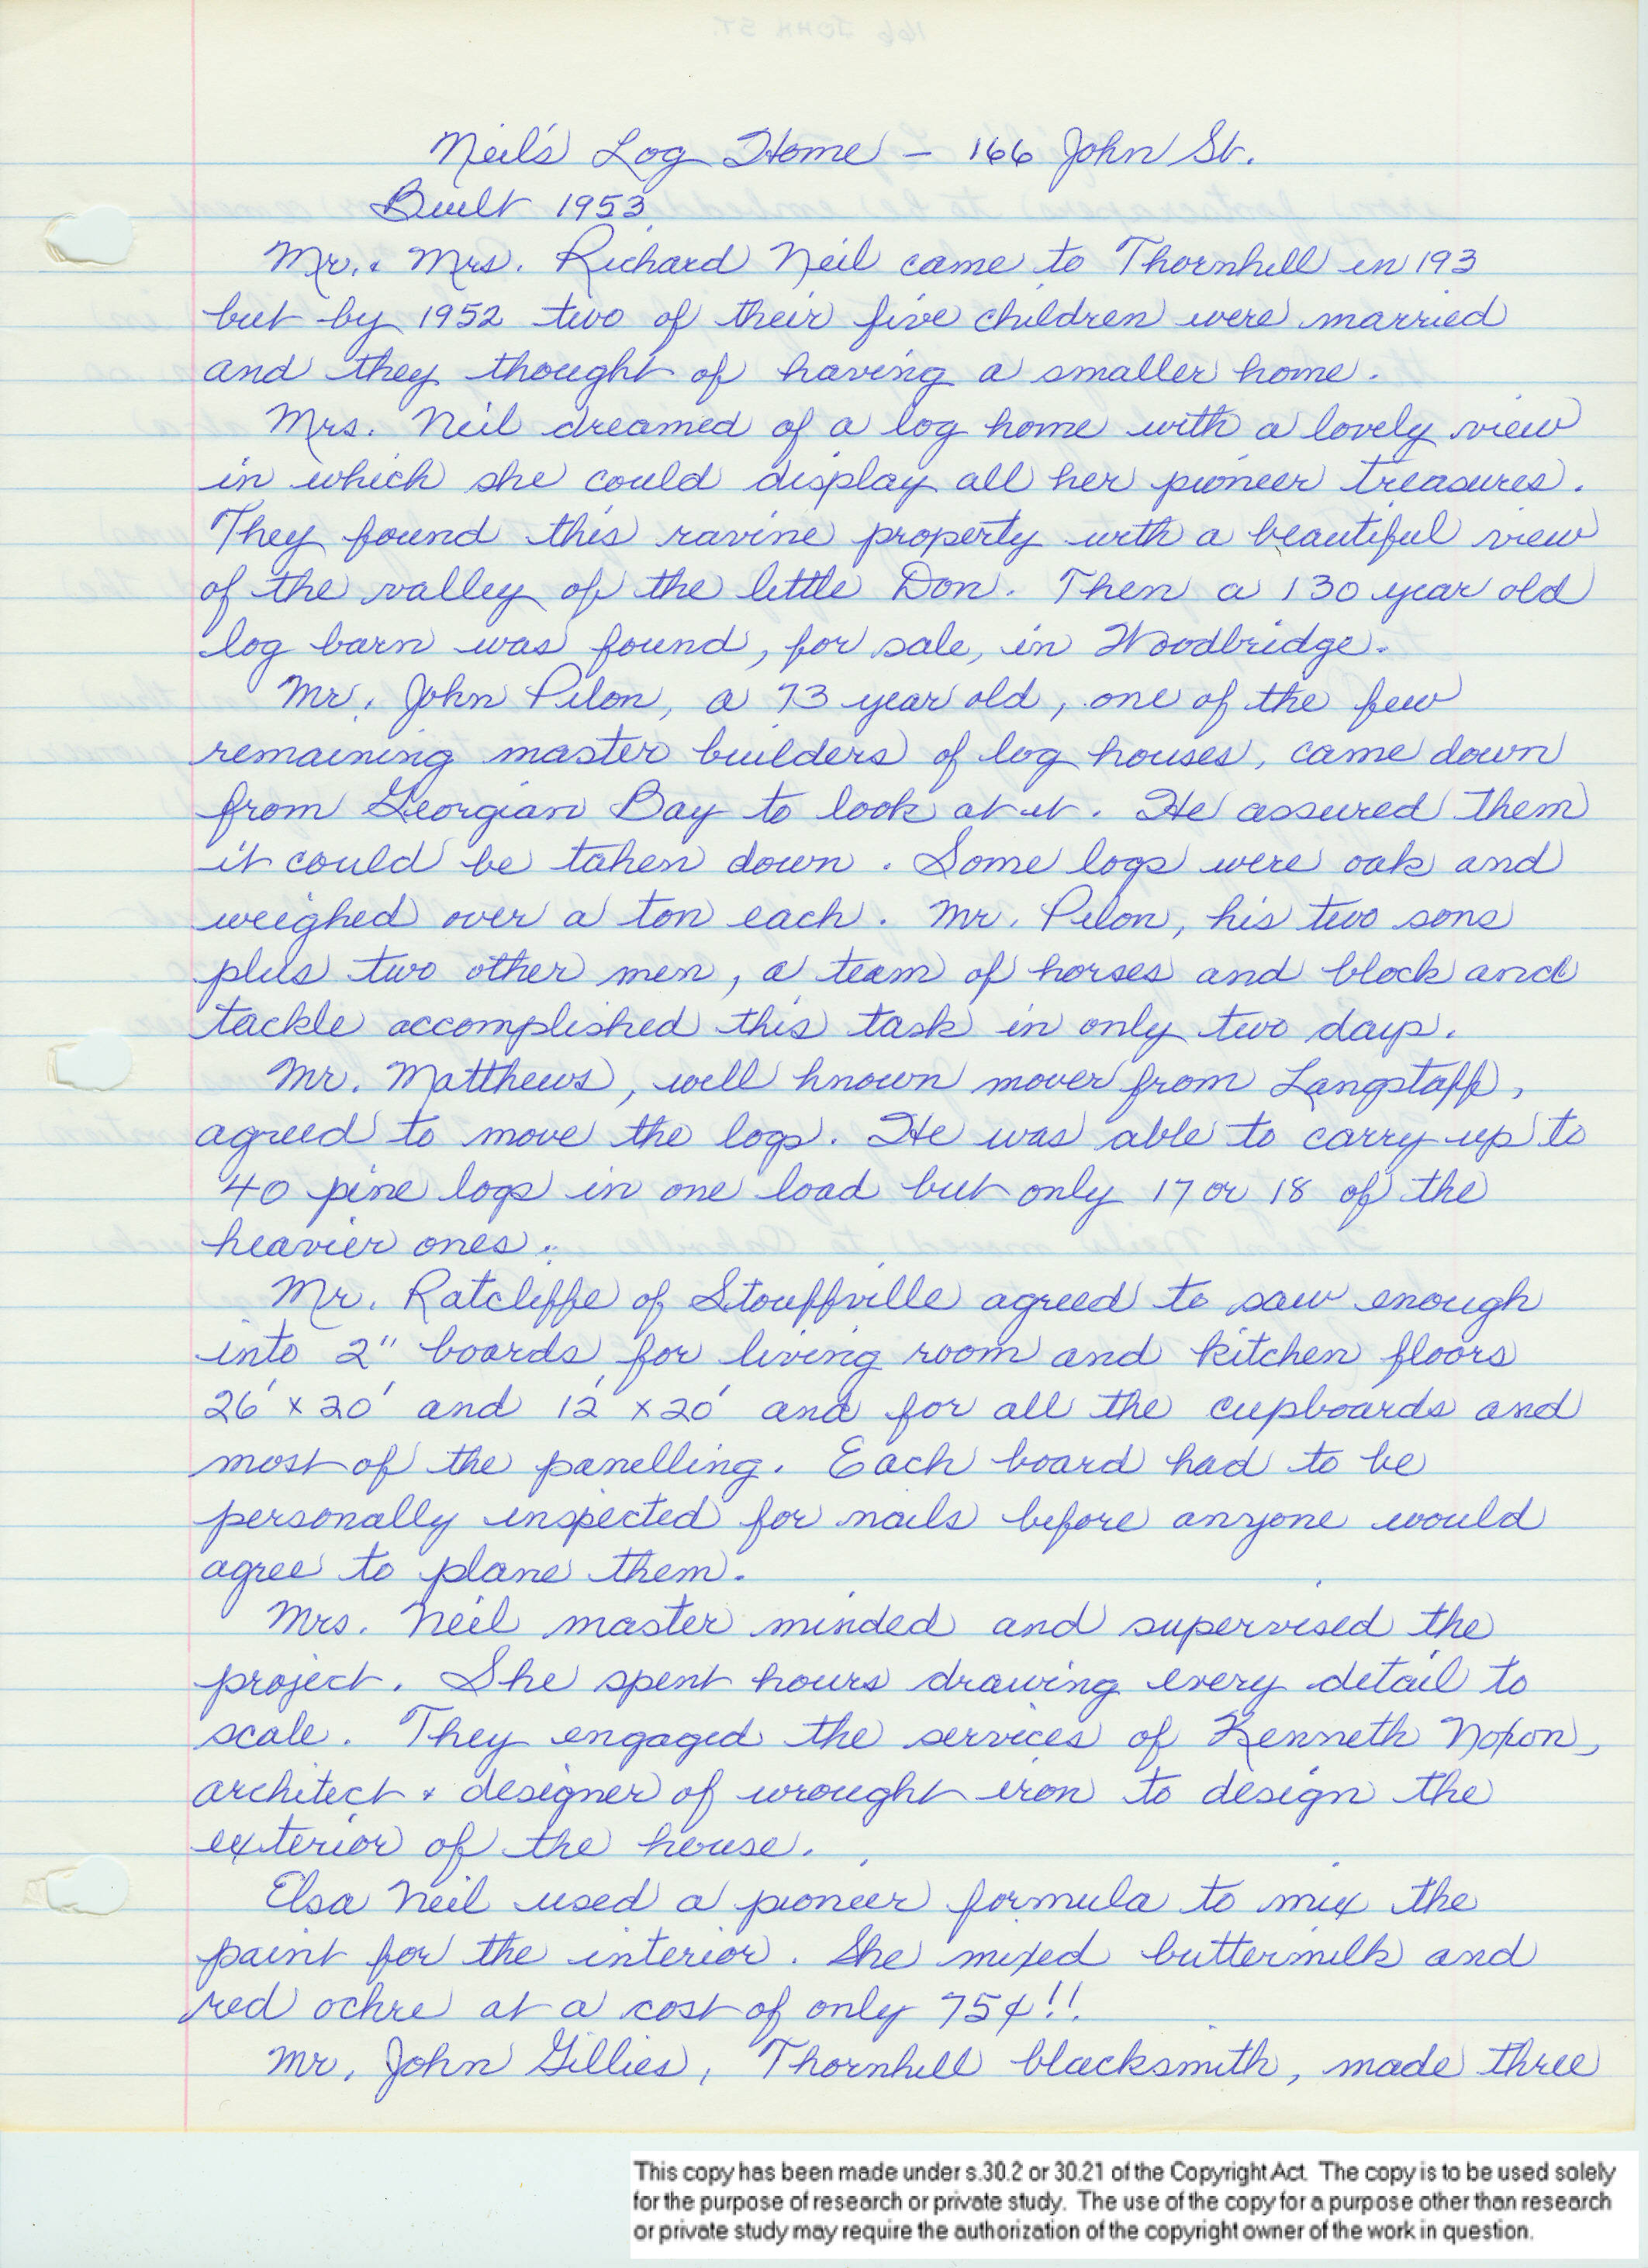 Neil's Log Home - 166 John St.
Built 1953
Mr. & Mrs. Richard Neil came to Thornhill in 193
but by 1952 two of their five children were married
and they thought of having a smaller home.
Mrs. Neil dreamed of a log home with a lovely view
in which she could display all her pioneer treasures.
They found this ravine property with a beautiful view
of the valley of the little Don. Then a 130 year old
log barn was found, for sale, in Woodbridge.
Mr. John Pilon, a 73 year old, one of the few
remaining master builders of log houses, came down
from Georgian Bay to look at it. He assured them
it could be taken down. Some logs were oak and
weighed over a ton each. Mr. Pilon, his two sons
plus two other men, a team of horses and block and
tackle accomplished this task in only two days.
Mr. Matthews, well known mover from Langstaff,
agreed to move the logs. He was able to carry up to
40 pine logs in one load but only 17 or 18 of the
heavier ones.
Mr. Ratcliffe of Stouffville agreed to saw enough
into 2" boards for living room and kitchen floors
26' x 20' and 12' x 20' and for all the cupboards and
most of the panelling. Each board had to be
personally inspected for nails before anyone would
agree to plane them.
Mrs. Neil master minded and supervised the
project. She spent hours drawing every detail to
scale. They engaged the services of Kenneth Noxon,
architect & designer of wrought iron to design the
exterior of the house.
Elsa Neil used a pioneer formula to mix the
paint for the interior. She mixed buttermilk and
red ochre at a cost of only 75¢!!
Mr. John Gillies, Thornhill blacksmith, made three
This copy has been made under s.30.2 or 30.21 of the Copyright Act. The copy is to be used solely
for the purpose of research or private study. The use of the copy for a purpose other than research
or private study may require the authorization of the copyright owner of the work in question.